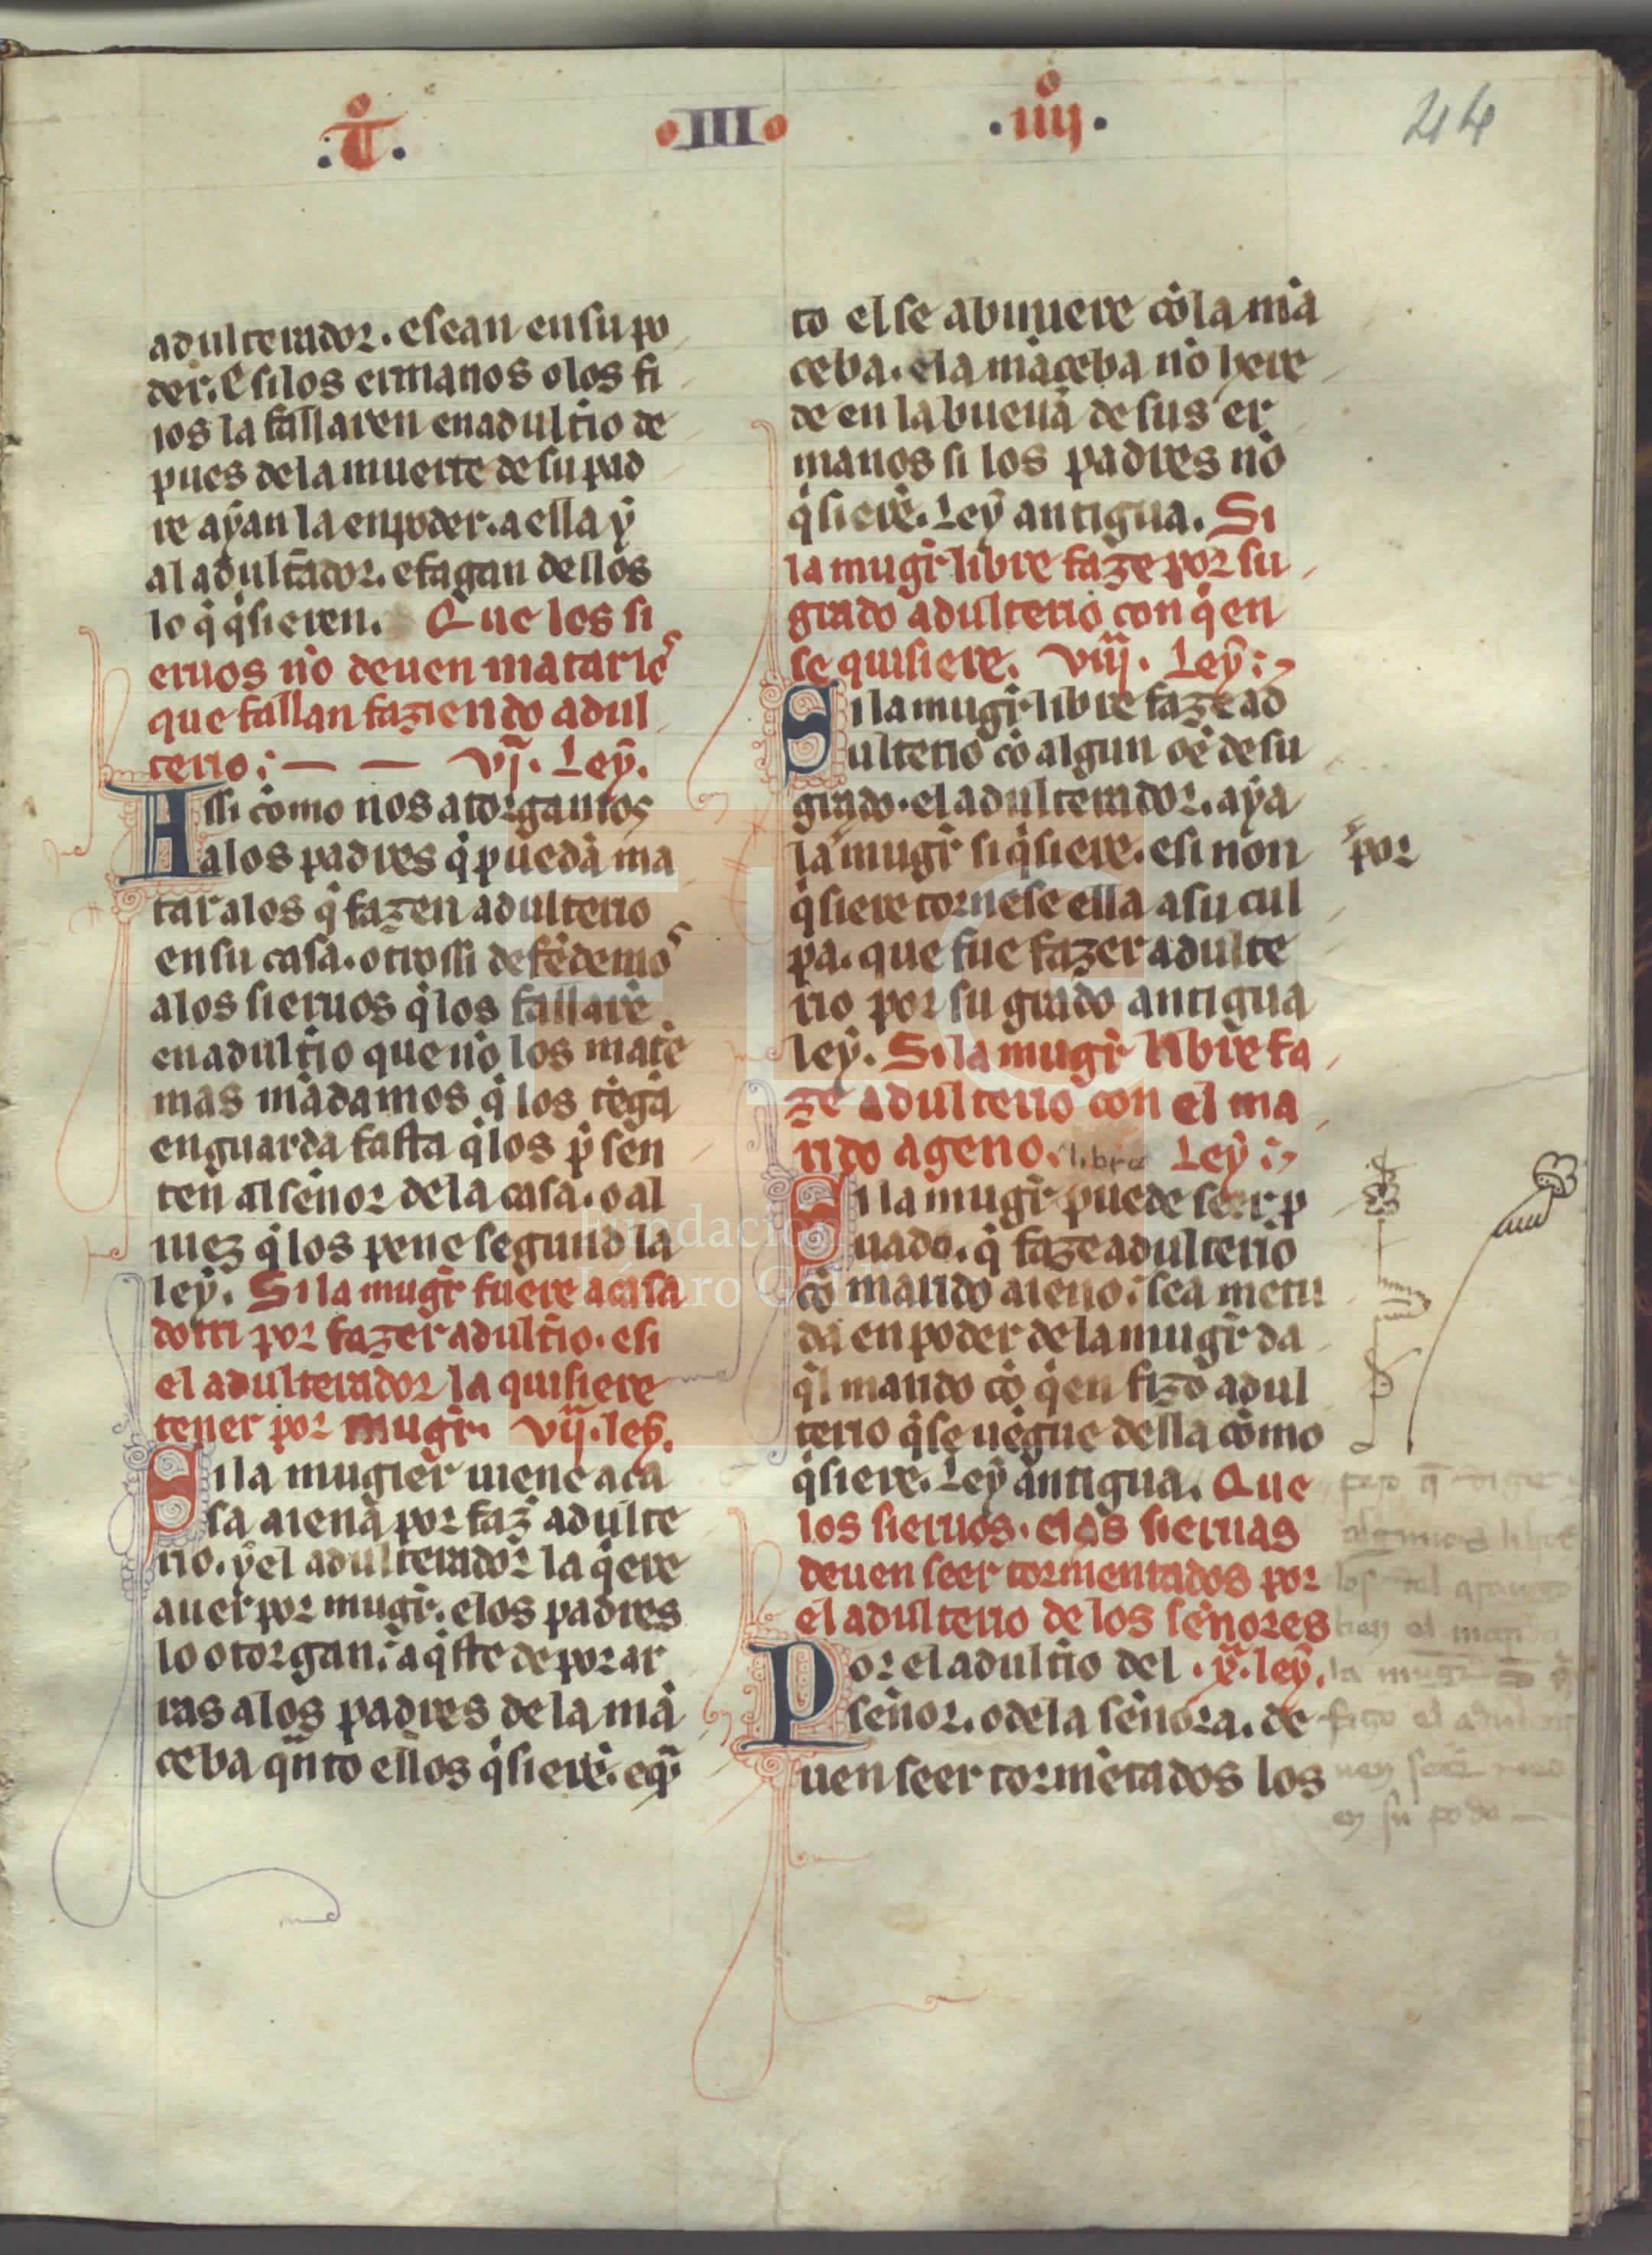 .tº. •III• .iiijº. 44
adulterador. e sean en su po
der. E si los ermanos o los fi
ios la fallaren en adult̉io de
pues de la muerte de su pad
re ayan la en poder. a ella ẏ
al adult̉ador. e fagan dellos
lo q̉ q̉sieren. Que los si
eruos nō deuen matar los
que fallan faziendo adul
terio: — — vj̃. Leẏ.
Assi como nos atorgamos
a los padres q̉ puedā ma
tar a los q̉ fazen adulterio
en su casa. otrossi defēdemos
a los sieruos q̉ los fallarē
en adult̉io que nō los matē
mas mādamos q̉ los tēgā
en guarda fasta q̉ los p̃sen
ten al señor de la casa. o al
iuez q̉ los pene segund la
leẏ. Si la mug̉r fuere a casa
dotri por fazer adult̉io. e si
el adulterador la quisiere
tener por mug̉r. vij̃. leẏ.
Si la mugier uiene a ca
sa aiena por faz̉ adulte
rio. ẏ el adulterador la q̉ere
auer por mug̉r. e los padres
lo otorgan: aq̉ste de por ar
ras a los padres de la mā
ceba qñto ellos q̉sierē. e q̃
to el se abiniere cō la mā
ceba. e la māceba nō here
de en la buenā de sus er
manos si los padres nō
q̉sierē. Leẏ antigua. Si
la mug̉r libre faze por su
grado adulterio con q̉en
se quisiere. viij̃. Leẏ:
Si la mug̉r libre faze ad
ulterio cō algun oē de su
grado. el adulterador. aẏa
la mug̉r si q̉siere. e si non
por
q̉siere tornese ella a su cul
pa. que fue fazer adulte
rio por su grado antigua
leẏ. Si la mug̉r libre fa
ze adulterio con el ma
rido ageno. libre Leẏ:
Si la mug̉r puede seer p
uado. q̉ faze adulterio
cō marido aieno: sea metu
da en poder de la mug̉r da
q̉l marido cō q̉en fizo adul
terio q̉ se uēgue della como
q̉siere. Leẏ antigua. Que
los sieruos. e las sieruas
deuen seer tormentados por
el adulterio de los señores
Por el adult̉io del .x̃. leẏ.
señor. o de la señora. de
uen seer tormētados los